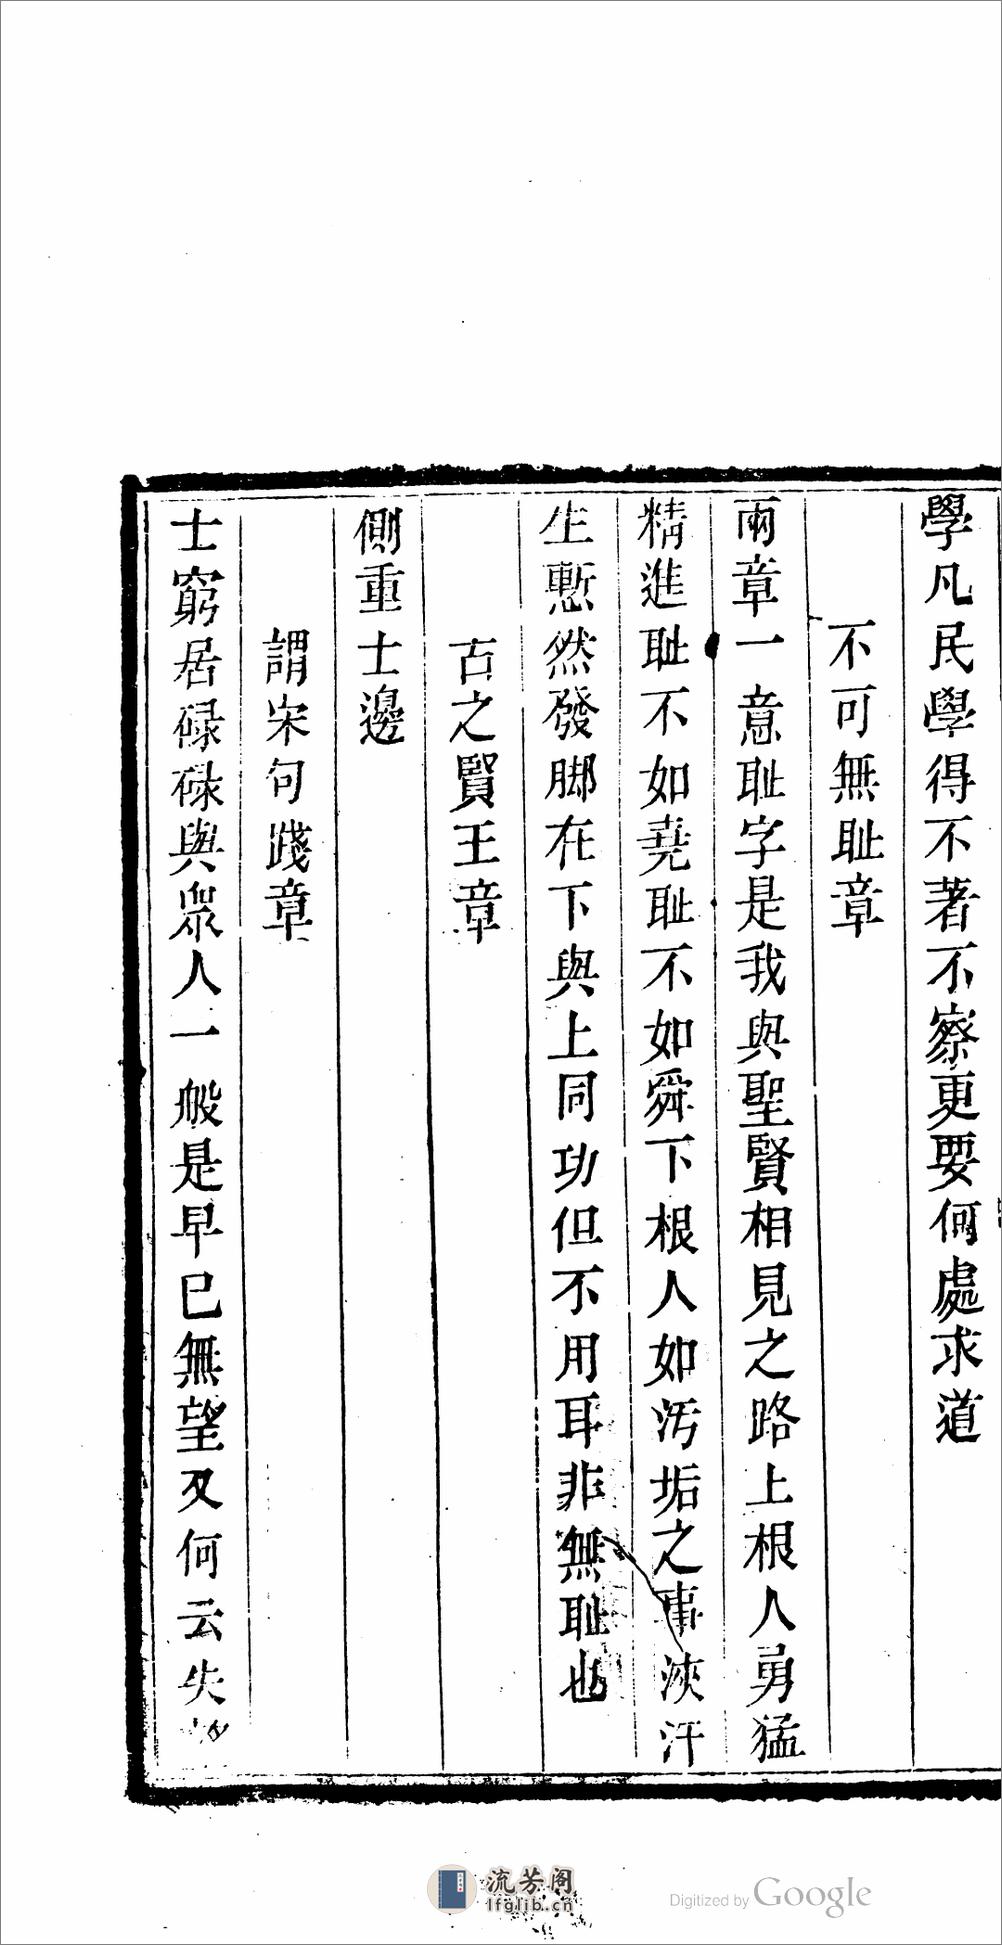 學凡民學得不著不察更要何處求道
不可無耻章
兩章一意耻字是我與聖賢相見之路上根人勇猛
精進耻不如堯耻不如舜下根人如污垢之事浹汗
生慙然發脚在下與上同功但不用耳非無耻也
古之賢王章
側重士邊
謂宋句踐章
士窮居碌碌與衆人一般是早已無望又何云失
流芳阁
lfglib.cn
Digitized by Google